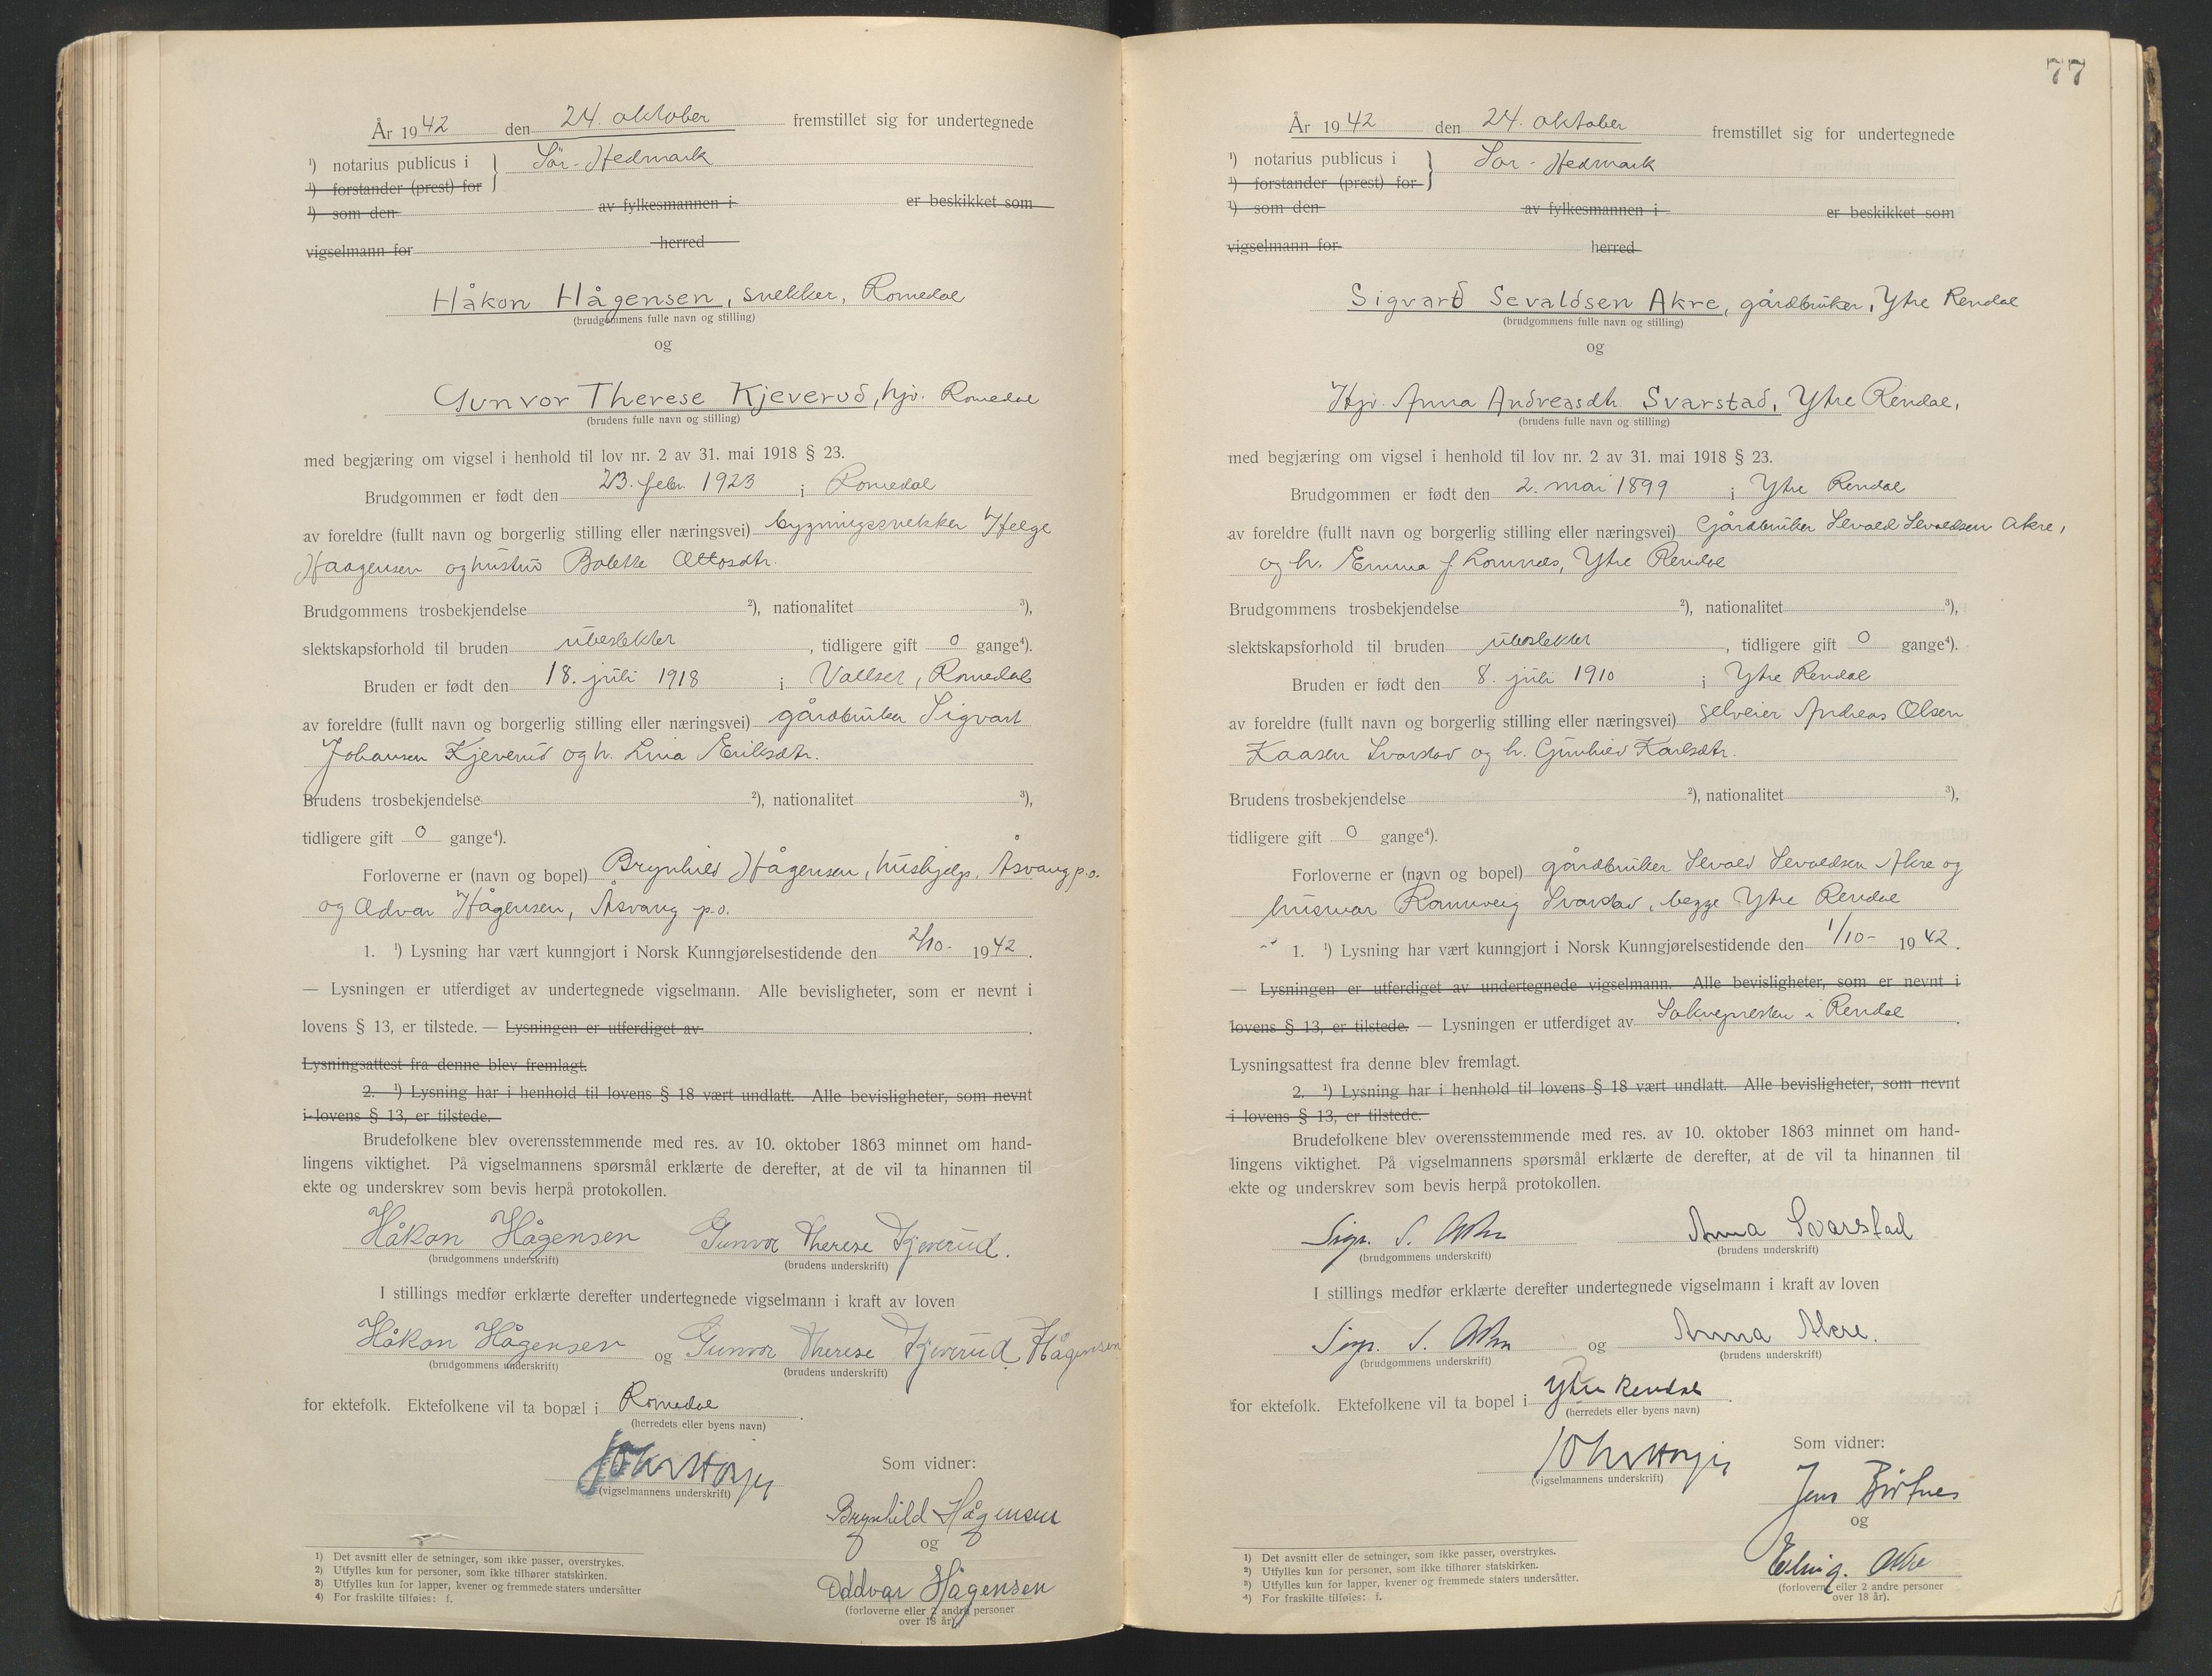 År 1942 den 24. oktober fremstillet sig for undertegnede
¹) notarius publicus i } Sör-Hedmark
¹) forstander (prest) for
¹) som den av fylkesmannen i er beskikket som
vigselmann for herred
Håkon Hågensen, snekker, Romedal
(brudgommens fulle navn og stilling)
og
Gunvor Therese Kjeverud, hjv. Romedal
(brudens fulle navn og stilling)
med begjæring om vigsel i henhold til lov nr. 2 av 31. mai 1918 § 23.
Brudgommen er født den 23. febr. 1923 i Romedal
av foreldre (fullt navn og borgerlig stilling eller næringsvei) bygningssnekker Helge
Haagensen og hustru Bolette Ottosdtr.
Brudgommens trosbekjendelse ²), nationalitet ³),
slektskapsforhold til bruden ubeslektet, tidligere gift 0 gange⁴).
Bruden er født den 18. juli 1918 i Vallset, Romedal
av foreldre (fullt navn og borgerlig stilling eller næringsvei) gårdbruker Sigvart
Johansen Kjeverud og h. Lina Eriksdtr.
Brudens trosbekjendelse ²), nationalitet ³),
tidligere gift 0 gange⁴).
Forloverne er (navn og bopel) Brynhild Hågensen, hushjelp, Åsvang p.o.
og Odvar Hågensen, Åsvang p.o.
1. ¹) Lysning har vært kunngjort i Norsk Kunngjørelsestidende den 2/10- 1942.
— Lysningen er utferdiget av undertegnede vigselmann. Alle bevisligheter, som er nevnt i
lovens § 13, er tilstede. — Lysningen er utferdiget av .
Lysningsattest fra denne blev fremlagt.
2. ¹) Lysning har i henhold til lovens § 18 vært undlatt. Alle bevisligheter, som nevnt
i lovens § 13, er tilstede.
Brudefolkene blev overensstemmende med res. av 10. oktober 1863 minnet om hand-
lingens viktighet. På vigselmannens spørsmål erklærte de derefter, at de vil ta hinannen til
ekte og underskrev som bevis herpå protokollen.
Håkon Hågensen Gunvor Therese Kjeverud.
(brudgommens underskrift) (brudens underskrift)
I stillings medfør erklærte derefter undertegnede vigselmann i kraft av loven
Håkon Hågensen og Gunvor Therese Kjeverud Hågensen
(brudgommens underskrift) (brudens underskrift)
for ektefolk. Ektefolkene vil ta bopæl i Romedal.
(herredets eller byens navn)
(vigselmannens underskrift)
Som vidner:
Brynhild Hågensen
og
Oddvar Hågensen
(forloverne eller 2 andre personer
over 18 år).
1) Det avsnitt eller de setninger, som ikke passer, overstrykes.
2) Utfylles kun for personer, som ikke tilhører statskirken.
3) Utfylles kun for lapper, kvener og fremmede staters undersåtter
4) For fraskilte tilføies: f.
77
År 1942 den 24. oktober fremstillet sig for undertegnede
¹) notarius publicus i } Sör-Hedmark
¹) forstander (prest) for
¹) som den av fylkesmannen i er beskikket som
vigselmann for herred
Sigvard Sevaldsen Akre, gårdbruker, Ytre Rendal
(brudgommens fulle navn og stilling)
og
Hjv. Anna Andreasdtr. Svarstad, Ytre Rendal,
(brudens fulle navn og stilling)
med begjæring om vigsel i henhold til lov nr. 2 av 31. mai 1918 § 23.
Brudgommen er født den 2. mai 1899 i Ytre Rendal
av foreldre (fullt navn og borgerlig stilling eller næringsvei) Gårdbruker Sevald Sevaldsen Akre,
og h. Emma f Lomnæs, Ytre Rendal
Brudgommens trosbekjendelse ²), nationalitet ³),
slektskapsforhold til bruden ubeslektet, tidligere gift 0 gange⁴).
Bruden er født den 8. juli 1910 i Ytre Rendal
av foreldre (fullt navn og borgerlig stilling eller næringsvei) selveier Andreas Olsen
Kaasen Svarstad og h. Gunhild Karlsdtr.
Brudens trosbekjendelse ²), nationalitet ³),
tidligere gift 0 gange⁴).
Forloverne er (navn og bopel) gårdbruker Sevald Sevaldsen Akre og
husmor Rannveig Svarstad, begge Ytre Rendal
1. ¹) Lysning har vært kunngjort i Norsk Kunngjørelsestidende den 1/10- 1942.
— Lysningen er utferdiget av undertegnede vigselmann. Alle bevisligheter, som er nevnt i
lovens § 13, er tilstede. — Lysningen er utferdiget av Soknepresten i Rendal.
Lysningsattest fra denne blev fremlagt.
2. ¹) Lysning har i henhold til lovens § 18 vært undlatt. Alle bevisligheter, som nevnt
i lovens § 13, er tilstede.
Brudefolkene blev overensstemmende med res. av 10. oktober 1863 minnet om hand-
lingens viktighet. På vigselmannens spørsmål erklærte de derefter, at de vil ta hinannen til
ekte og underskrev som bevis herpå protokollen.
Sigv. S. Akre Anna Svarstad
(brudgommens underskrift) (brudens underskrift)
I stillings medfør erklærte derefter undertegnede vigselmann i kraft av loven
Sigv. S. Akre og Anna Akre.
(brudgommens underskrift) (brudens underskrift)
for ektefolk. Ektefolkene vil ta bopel i Ytre Rendal.
(herredets eller byens navn)
(vigselmannens underskrift)
Som vidner:
Jens Børtnes
og
Akre
(forloverne eller 2 andre personer
over 18 år).
1) Det avsnitt eller de setninger, som ikke passer, overstrykes.
2) Utfylles kun for personer, som ikke tilhører statskirken.
3) Utfylles kun for lapper, kvener og fremmede staters undersåtter.
4) For fraskilte tilføies: f.